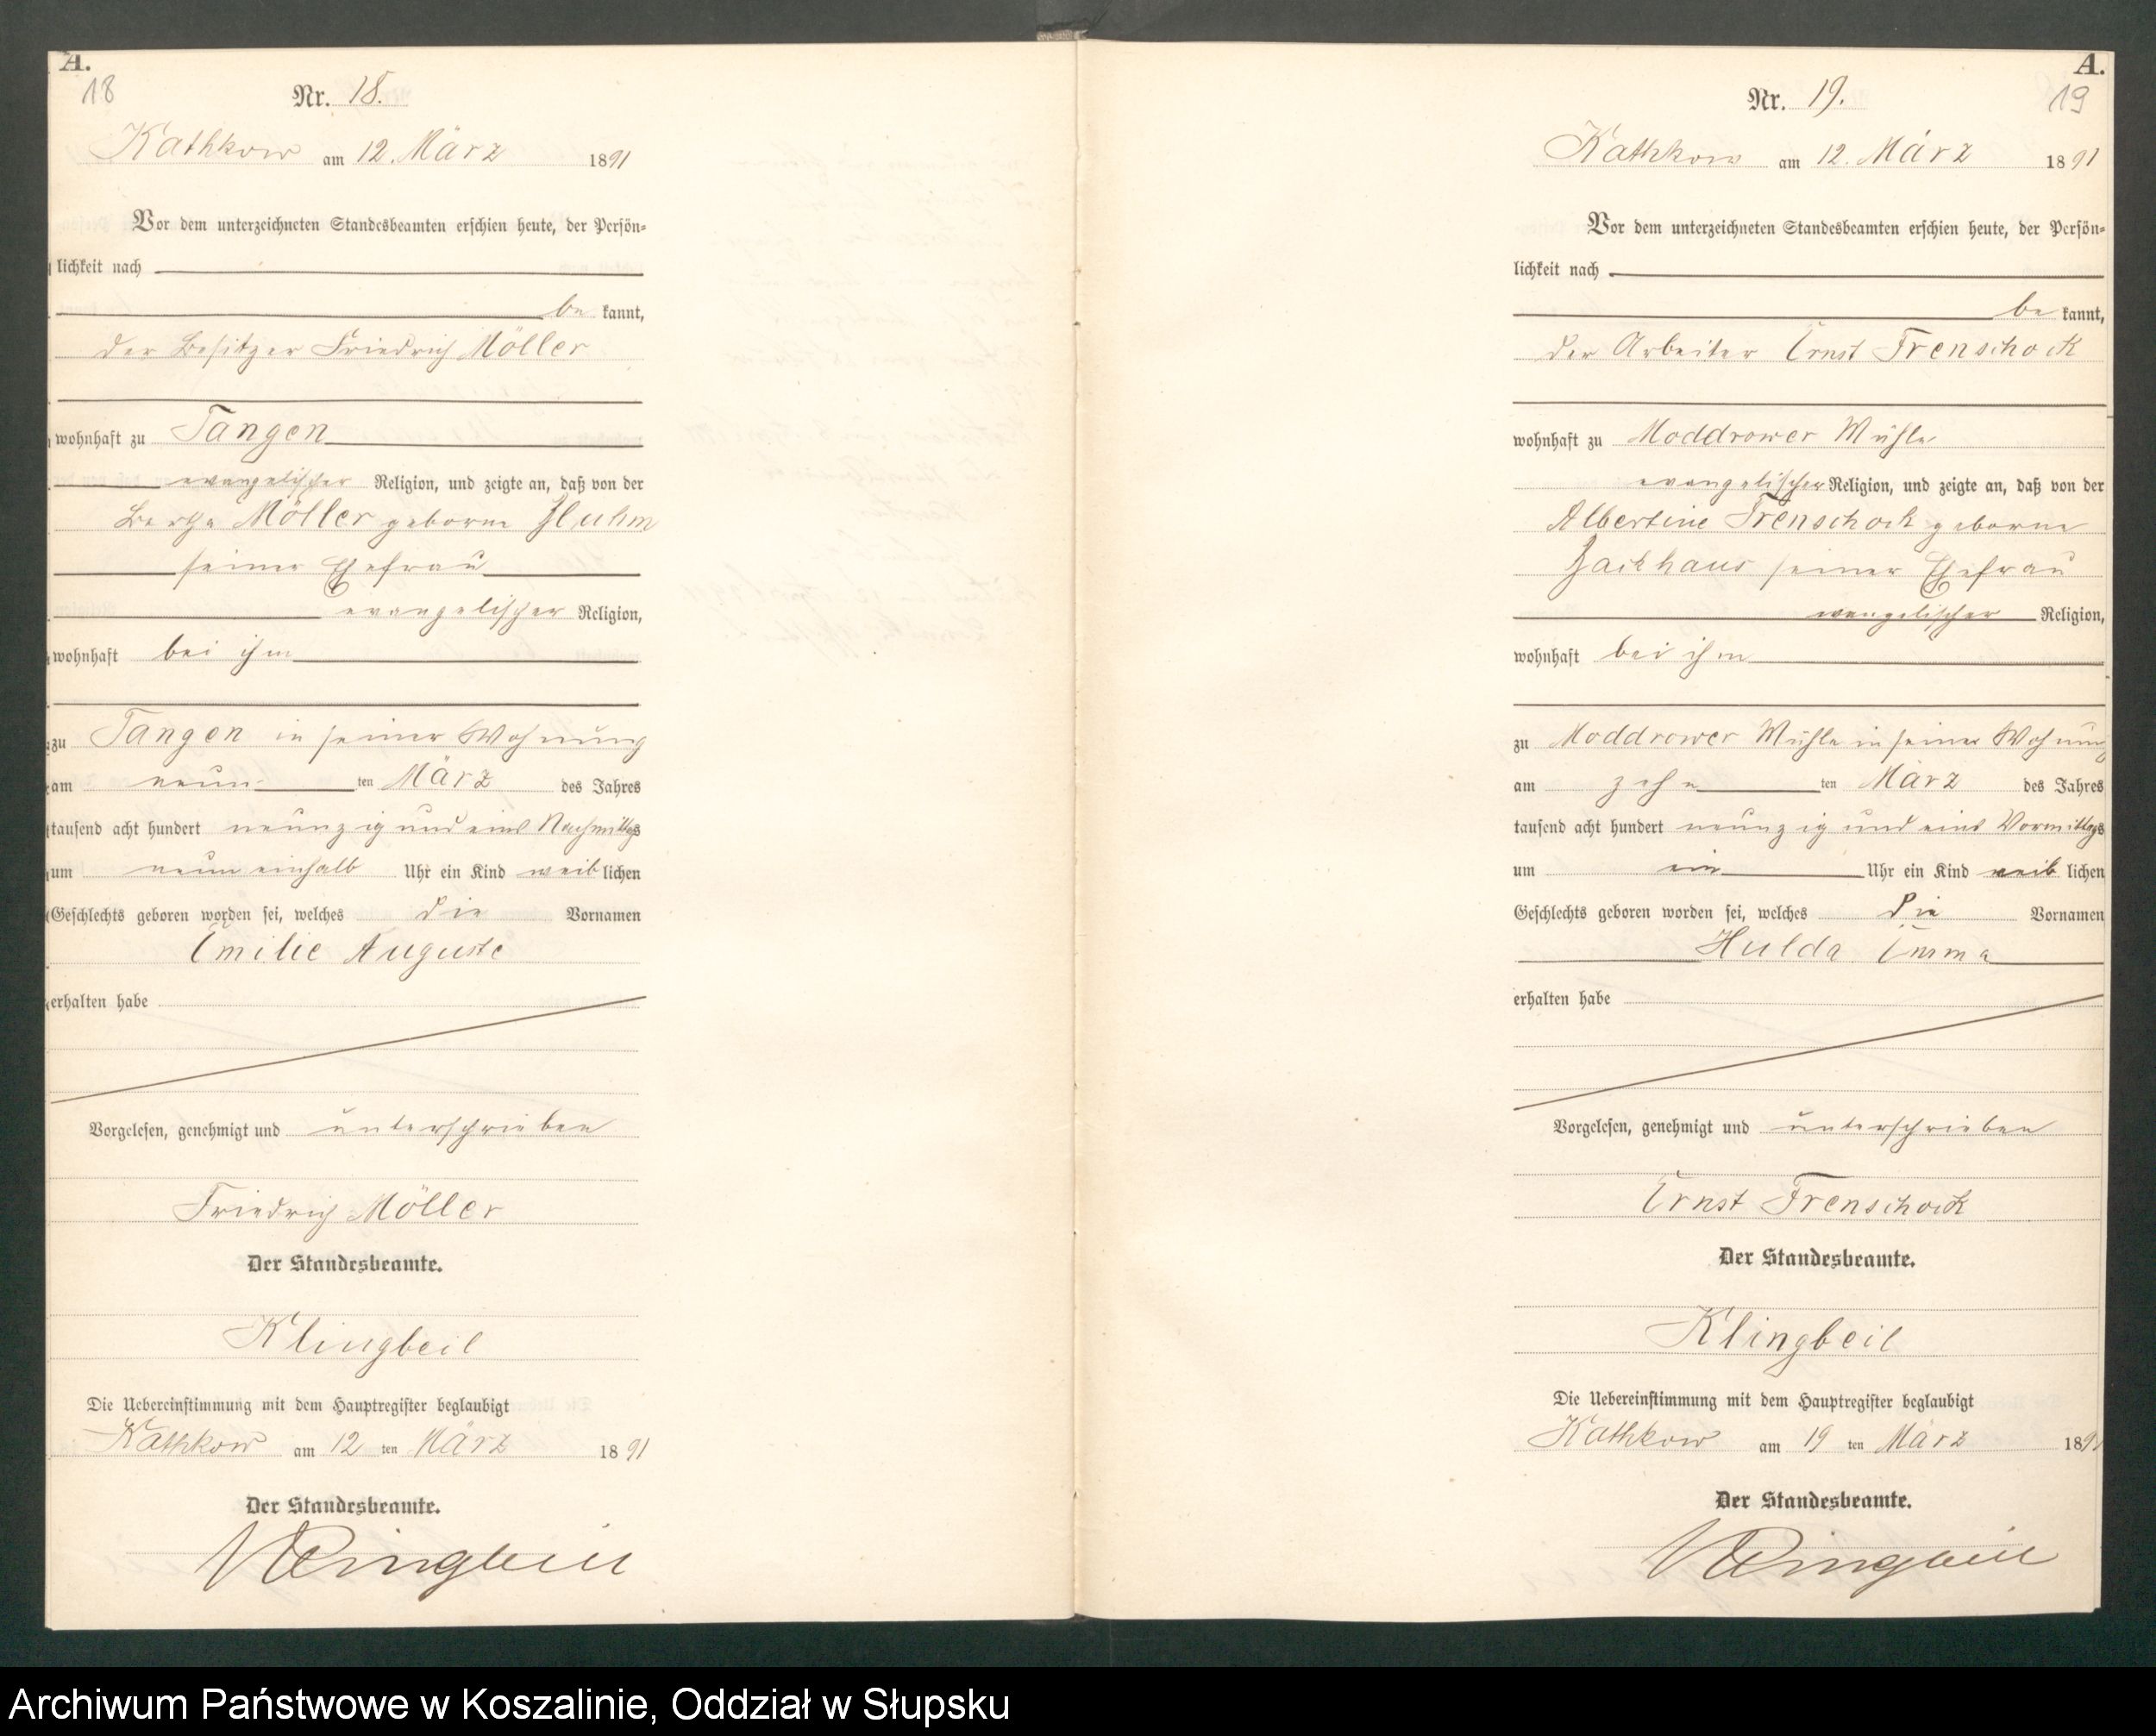 A.
18
Nr. 18.
Kathkow am 12. März 1891
Vor dem unterzeichneten Standesbeamten erschien heute, der Persön-
lichkeit nach
be kannt,
der Besitzer Friedrich Möller
wohnhaft zu Tangen
evangelischer Religion, und zeigte an, daß von der
Bertha Möller geborne
seiner Ehefrau
evangelischer Religion,
wohnhaft bei ihm
zu Tangen in seiner Wohnung
am neun ten März des Jahres
tausend acht hundert neunzig und eins Nachmittags
um neun einhalb Uhr ein Kind weiblichen
Geschlechts geboren worden sei, welches die Vornamen
Emilie Auguste
erhalten habe
Vorgelesen, genehmigt und unterschrieben
Friedrich Möller
Der Standesbeamte.
Klingbeil
Die Uebereinstimmung mit dem Hauptregister beglaubigt
Kathkow am 12 ten März 1891
Der Standesbeamte.
Klingbeil
A.
19
Nr. 19.
Kathkow am 12. März 1891
Vor dem unterzeichneten Standesbeamten erschien heute, der Persön-
lichkeit nach
be kannt,
der Arbeiter Ernst Frenschock
wohnhaft zu Moddrower Mühle
evangelischer Religion, und zeigte an, daß von der
Albertine Frenschock geborne
Zackhaus seiner Ehefrau
evangelischer Religion,
wohnhaft bei ihm
zu Moddrower Mühle in seiner Wohnung
am zehn ten März des Jahres
tausend acht hundert neunzig und eins Vormittags
um ein Uhr ein Kind weiblichen
Geschlechts geboren worden sei, welches die Vornamen
Hulda Emma
erhalten habe
Vorgelesen, genehmigt und unterschrieben
Ernst Frenschock
Der Standesbeamte.
Klingbeil
Die Uebereinstimmung mit dem Hauptregister beglaubigt
Kathkow am 19 ten März 1891
Der Standesbeamte.
Klingbeil
Archiwum Państwowe w Koszalinie, Oddział w Słupsku